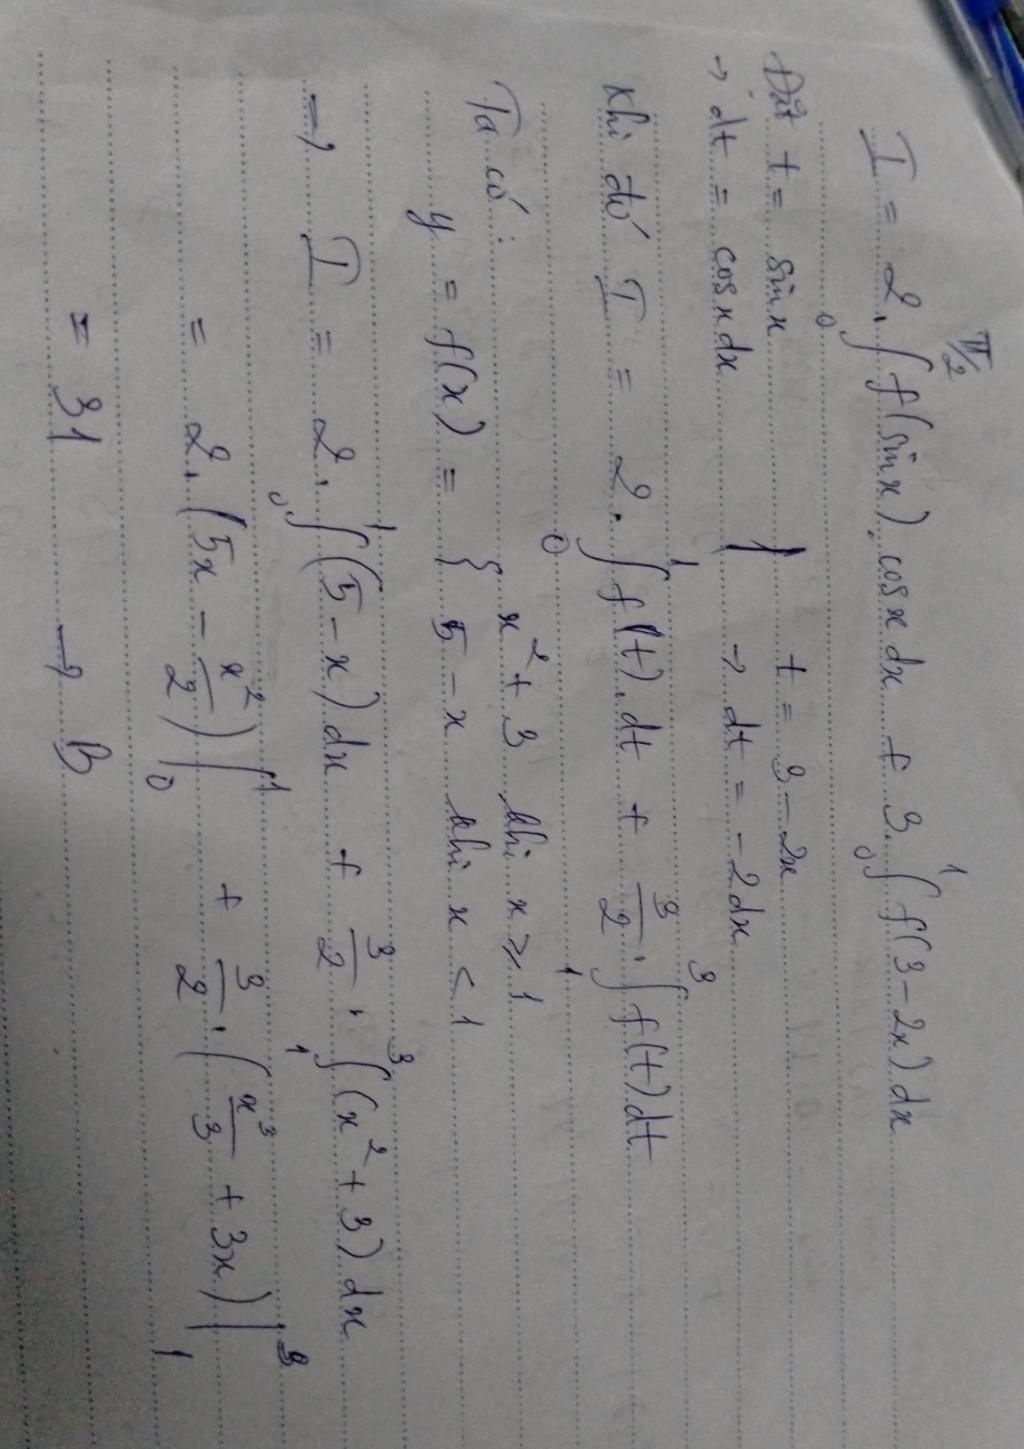 I = 2. ∫₀^{π/2} f(sin x). cos x dx + 3. ∫₀¹ f(3 - 2x) dx
Đặt t = sin x | t = 3 - 2x
→ dt = cos x dx | → dt = -2dx
Khi đó I = 2. ∫₀¹ f(t). dt + 3/2 . ∫₁³ f(t) dt
Ta có :
y = f(x) = { x² + 3 khi x ≥ 1
5 - x khi x < 1
=> I = 2. ∫₀¹ (5 - x) dx + 3/2 . ∫₁³ (x² + 3) dx
= 2. (5x - x²/2) |₀¹ + 3/2 . (x³/3 + 3x) |₁³
= 31 → B